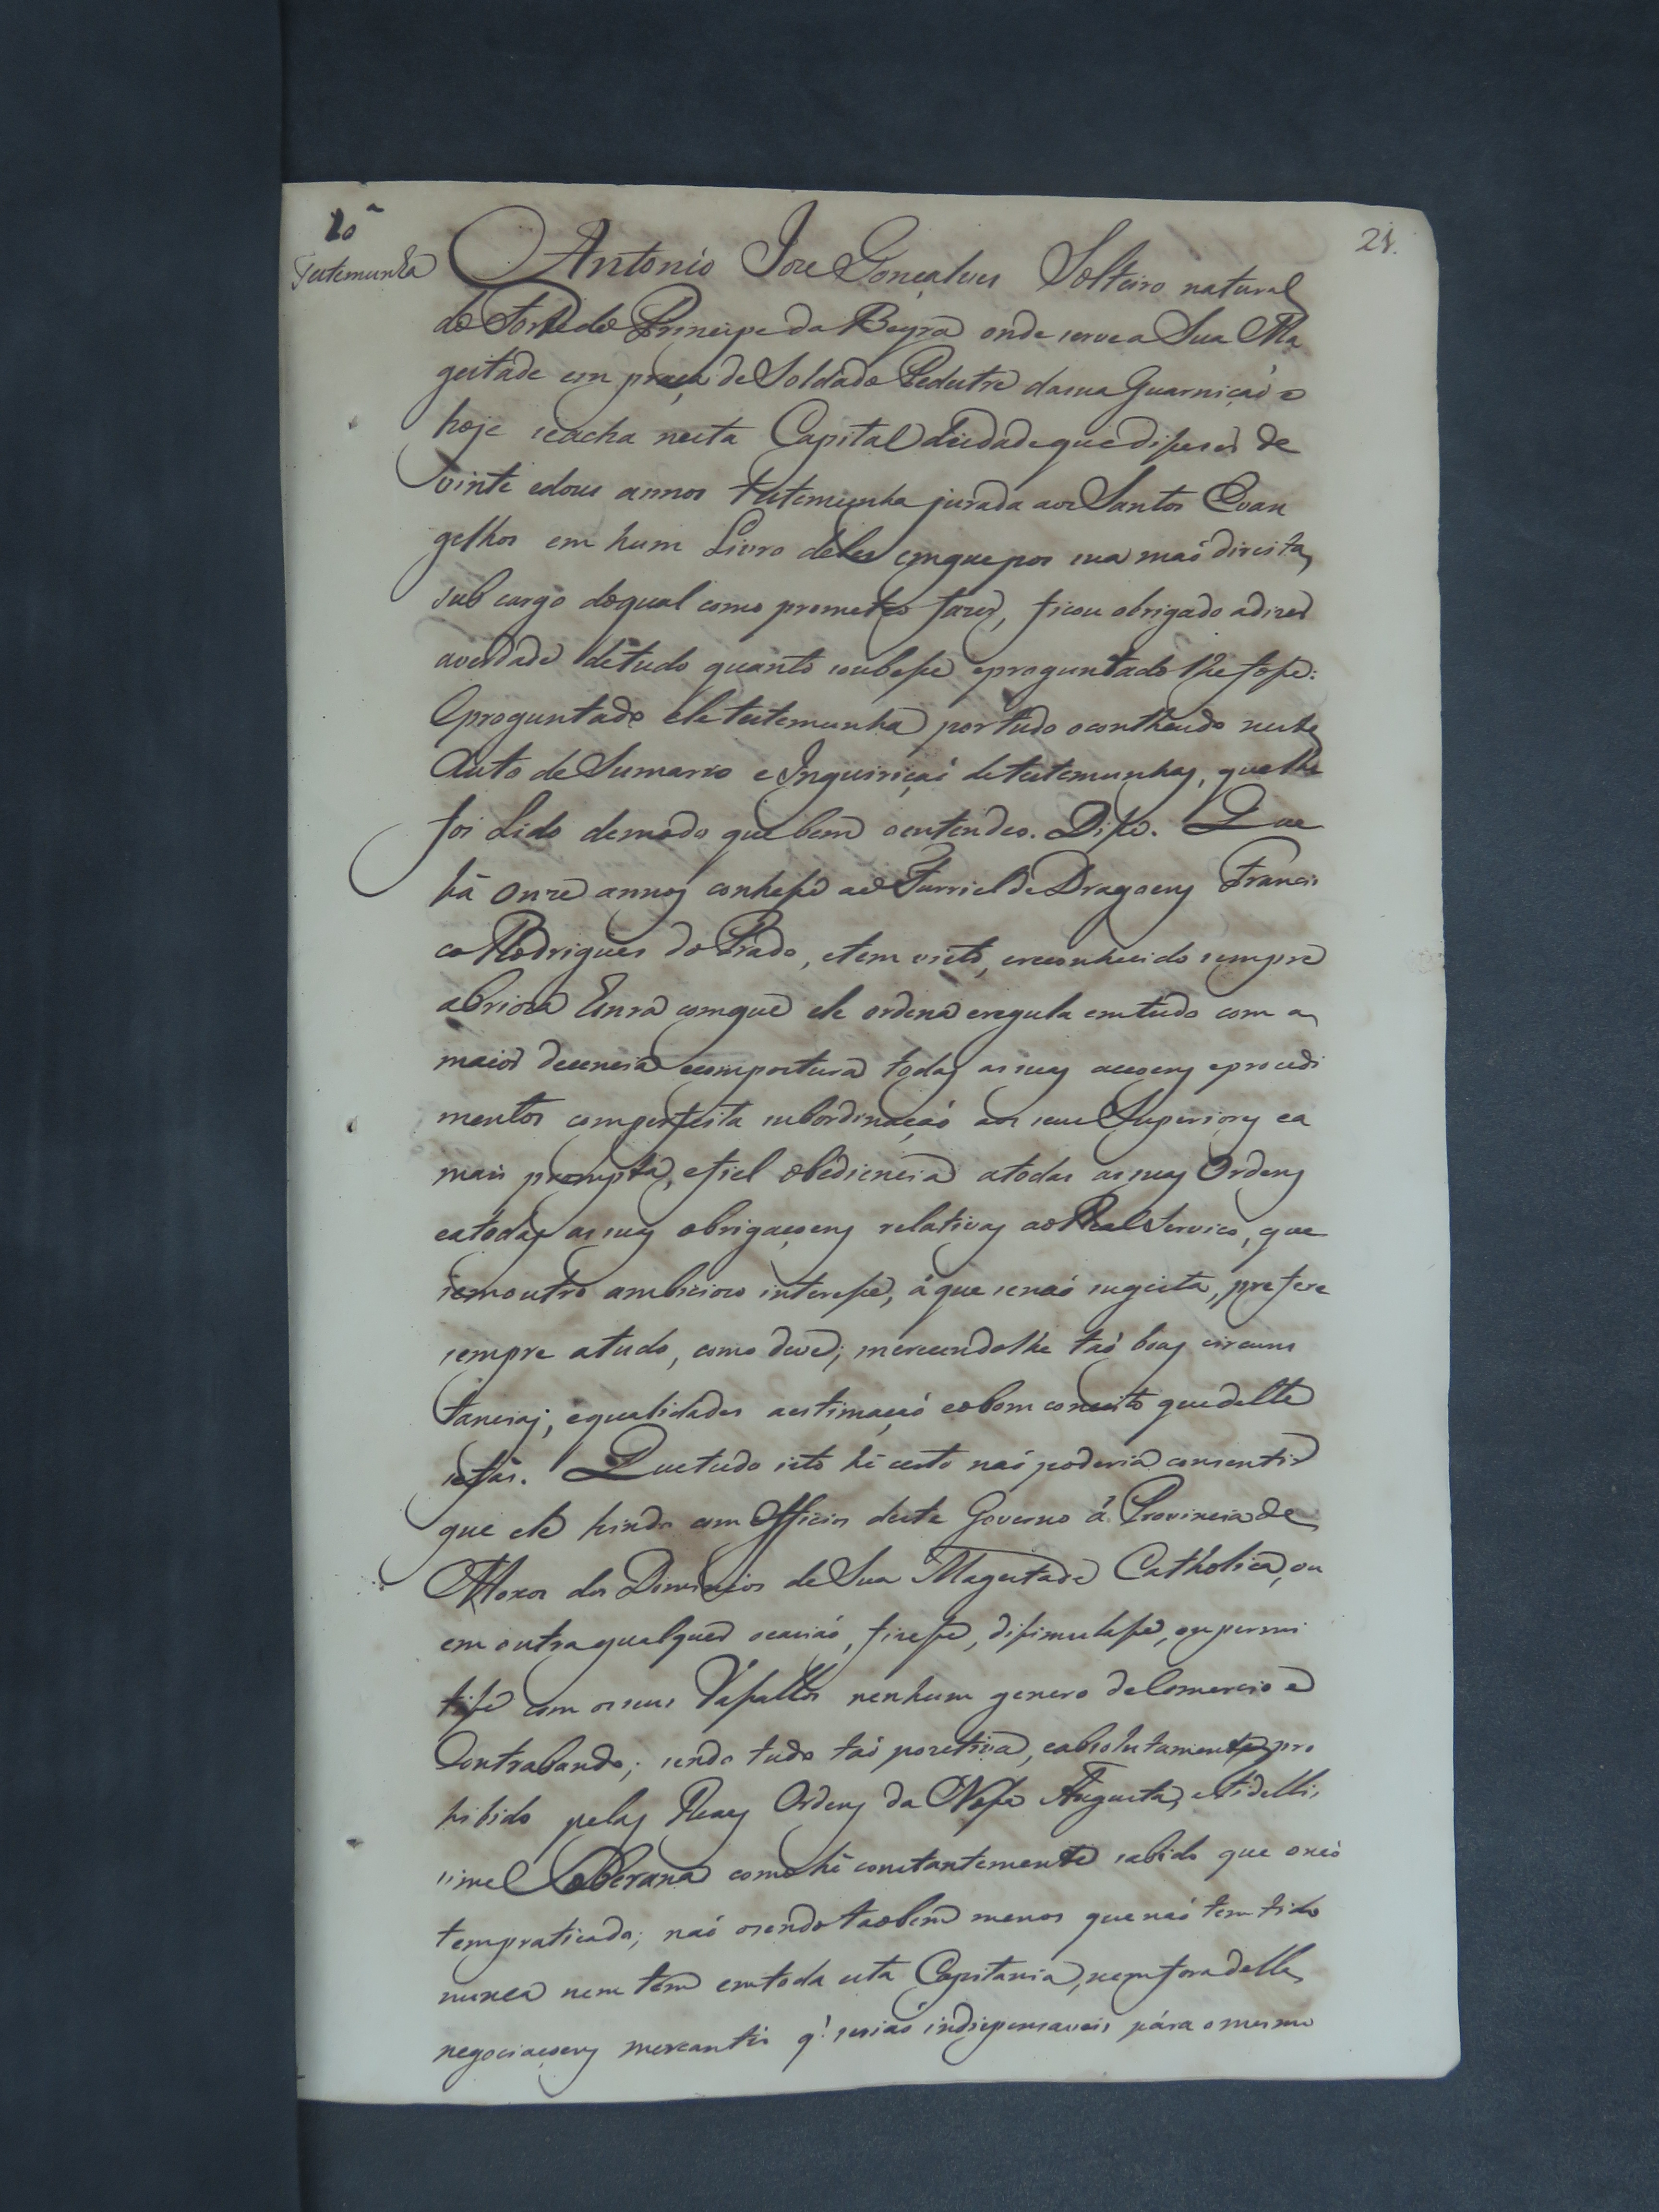 21.
10ª
Testemunha
Antonio Joze Gonçalves Solteiro natural
do Forte do Principe da Beyra onde serve a Sua Ma
gestade em praça de Soldado Pedestre da sua Guarniçaõ e
hoje se acha nesta Capital de idade que disse ser de
vinte e dous annos testemunha jurada aos Santos Evan
gelhos em hum Livro deles em que pos sua maõ direita,
sub cargo do qual como prometeo fazer, ficou obrigado a dizer
a verdade de tudo quanto soubesse e proguntado lhe fosse:
E proguntado ele testemunha por tudo o contheudo neste
Auto de Sumario e Inquiriçaõ de testemunhas, que lhe
foi Lido de modo que bem o entendeo. Disse. Que
há onze annos conhesse ao Furriel de Dragoens Francis
co Rodrigues do Prado, e tem visto, e reconhecido sempre
a brioza honra com que ele ordena e regula em tudo com a
maior decencia e compostura todas as suas acçoens e procedi
mentos com perfeita subordinaçaõ aos seus Superiores e a
mais prompta, e fiel obediencia a todas as suas Ordens
e a todas as suas obrigaçoens relativas ao Real Serviço, que
sem outro ambiciozo interesse, á que se naõ sugeita, prefere
sempre a tudo, como deve; merecendo lhe taõ boas circuns
tancias, e qualidades a estimaçaõ e o bom conceito que delle
se fás. Que tudo isto hé certo naõ poderia consentir
que ele hindo com Officios deste Governo á Provincia de
Moxos dos Dominios de Sua Magestade Catholica, ou
em outra qualquer ocaziaõ, fizesse, dissimulasse, ou permi
tisse com os seus Vassallos nenhum genero de Comercio e
Contrabando; sendo tudo taõ pozetiva, e absolutamente pro
hibido pelas Reaes Ordens da Nossa Augusta, e Fidellis
sima Soberana como hé constantemente sabido que o naõ
tem praticado; naõ o sendo taobem menos que naõ tem tido
nunca nem tem em toda esta Capitania, nem fora della,
negociaçoens mercantis q' seriaõ indispensaveis pára o mesmo